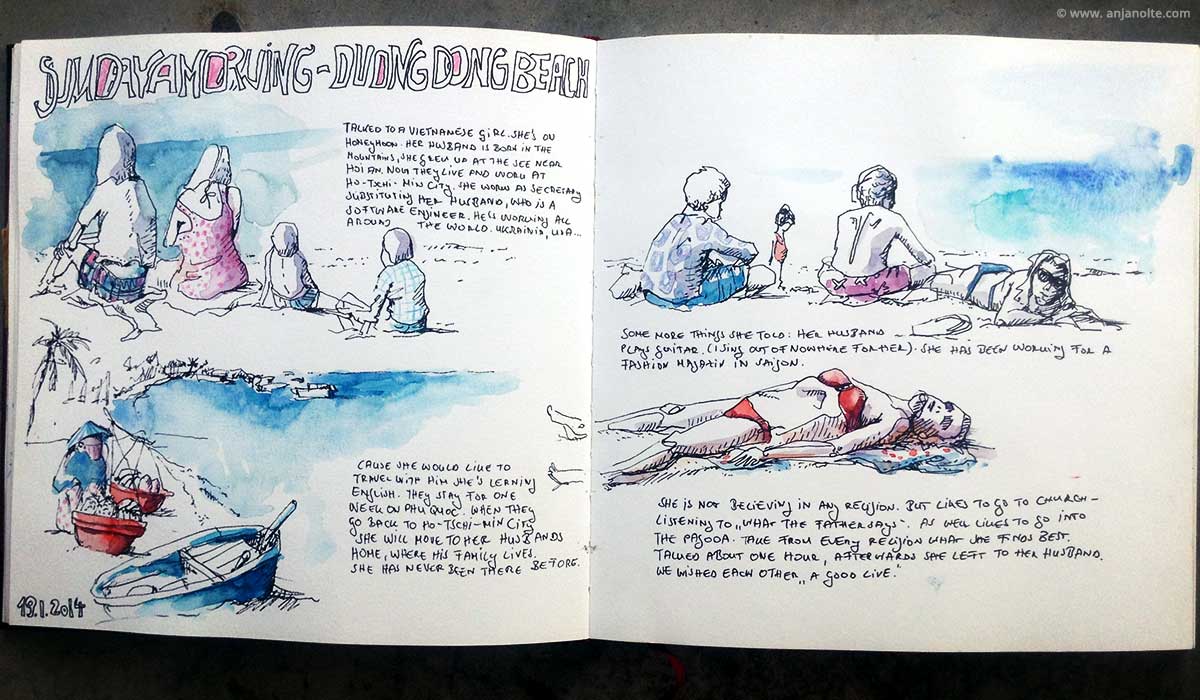 © www. anjanolte.com
SUNDAYAMORNING - DUONG DONG BEACH
TALKED TO A VIETNAMESE GIRL. SHE'S ON
HONEYMOON. HER HUSBAND IS BORN IN THE
MOUNTAINS, SHE GREW UP AT THE SEE NEAR
HOI AN. NOW THEY LIVE AND WORK AT
HO-TSCHI-MIN CITY. SHE WORKS AS SECRETARY
SUBSTITUTING HER HUSBAND, WHO IS A
SOFTWARE ENGINEER. HE'S WORKING ALL
AROUND THE WORLD. UKRAINIA, USA...
CAUSE SHE WOULD LIKE TO
TRAVEL WITH HIM SHE'S LERNING
ENGLISH. THEY STAY FOR ONE
WEEK ON PHU QUOC. WHEN THEY
GO BACK TO HO-TSCHI-MIN CITY
SHE WILL MOVE TO HER HUSBANDS
HOME, WHERE HIS FAMILY LIVES.
SHE HAS NEVER BEEN THERE BEFORE.
19.1.2014
SOME MORE THINGS SHE TOLD: HER HUSBAND
PLAYS GUITAR. (I SING OUT OF NOWHERE FOR HER). SHE HAS BEEN WORKING FOR A
FASHION MAGAZIN IN SAIGON.
SHE IS NOT BELIEVING IN ANY RELIGION. BUT LIKES TO GO TO CHURCH -
LISTENING TO „WHAT THE FATHER SAYS". AS WELL LIKES TO GO INTO
THE PAGODA. TAKE FROM EVERY RELIGION WHAT SHE FINDS BEST.
TALKED ABOUT ONE HOUR, AFTERWARDS SHE LEFT TO HER HUSBAND.
WE WISHED EACH OTHER „A GOOD LIVE."